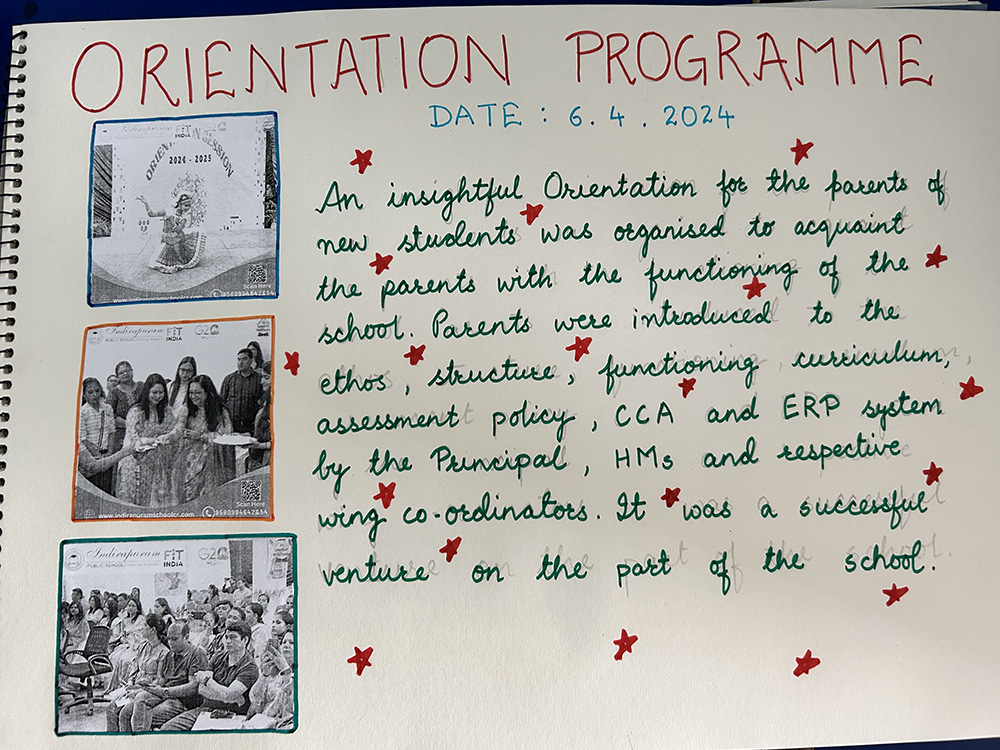 ORIENTATION PROGRAMME
DATE : 6.4.2024
An insightful Orientation for the parents of
new students was organised to acquaint
the parents with the functioning of the
school. Parents were introduced to the
ethos, structure, functioning, curriculum,
assessment policy, CCA and ERP system
by the Principal, HMs and respective
wing co-ordinators. It was a successful
venture on the part of the school.
Indirapuram FIT INDIA G20
ORIENTATION SESSION
2024 - 2025
Scan Here
Indirapuram FIT INDIA G20
Scan Here
Indirapuram
PUBLIC SCHOOL
FIT INDIA
G20